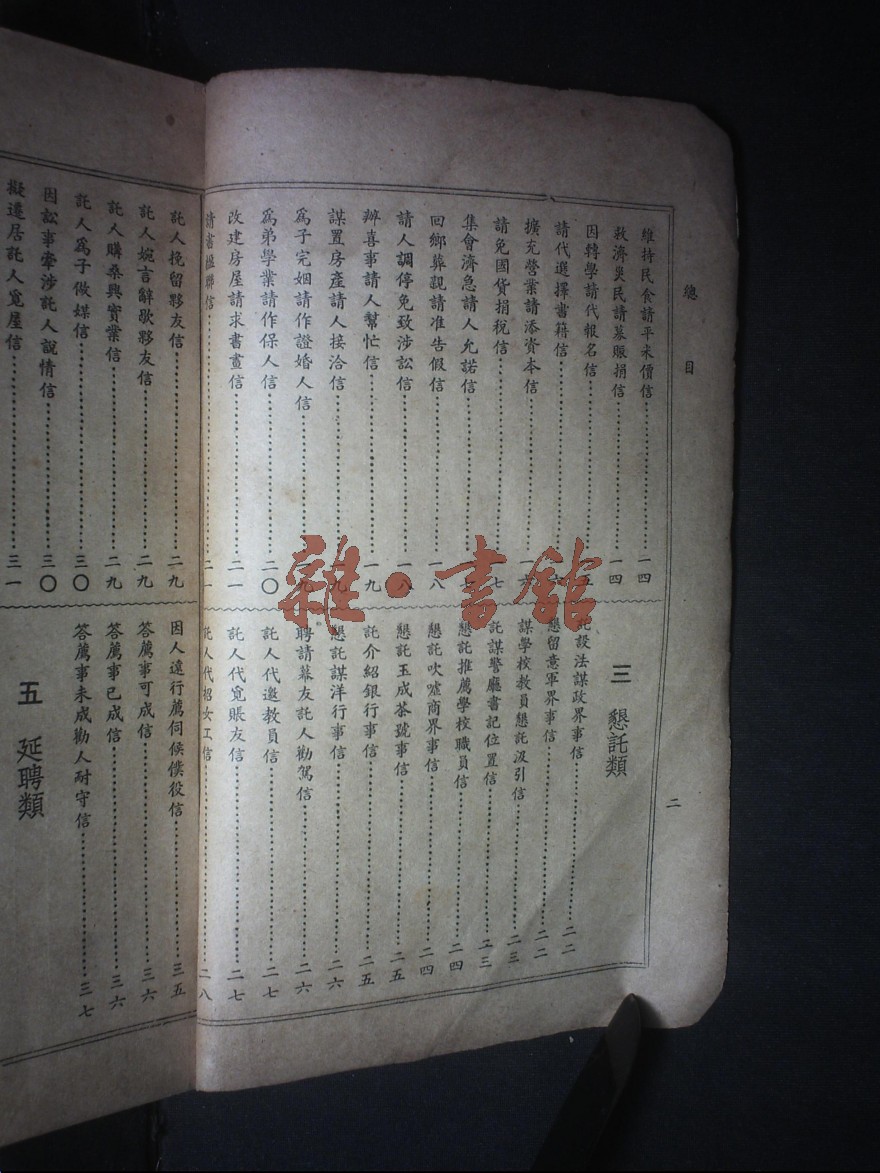 總目
二
維持民食請平米價信……一四
救濟災民請募賑捐信……一四
因轉學請代報名信……五
請代選擇書籍信……
擴充營業請添資本信……一六
請免國貨捐稅信……一七
集會濟急請人允諾信……
回鄉葬親請准告假信……一八
請人調停免致涉訟信……一八
辦喜事請人幫忙信……一九
謀置房產請人接洽信……
爲子完姻請作證婚人信……
爲弟學業請作保人信……二〇
改建房屋請求書畫信……二一
請書楹聯信……二一
三 懇託類
託設法謀政界事信……二二
懇留意軍界事信……二二
謀學校教員懇託汲引信……二三
託謀警廳書記位置信……二三
懇託推薦學校職員信……二四
懇託吹噓商界事信……二四
懇託玉成茶號事信……二五
託介紹銀行事信……二五
懇託謀洋行事信……二六
聘請幕友託人勸駕信……二六
託人代邀教員信……二七
託人代覓賬友信……二七
託人代招女工信……二八
託人挽留夥友信……二九
託人婉言辭歇夥友信……二九
託人購桑興實業信……二九
託人爲子做媒信……三〇
因訟事牽涉託人說情信……三〇
擬遷居託人覓屋信……三一
因人遠行薦伺候僕役信……三五
答薦事可成信……三六
答薦事已成信……三六
答薦事未成勸人耐守信……三七
五 延聘類
雜·書館